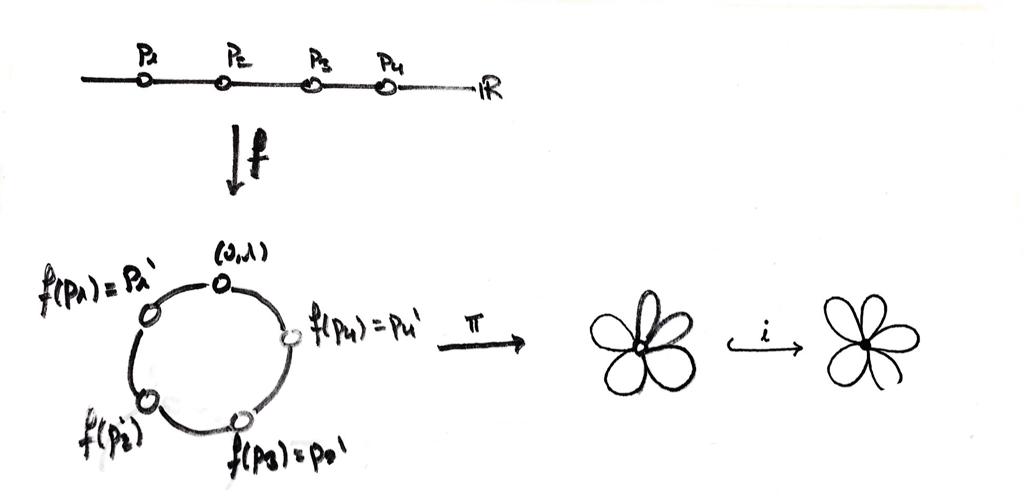 P1 P2 P3 P4
ℝ
f
(0,1)
f(p1) = p1'
f(p4) = p4'
π
i
f(p2')
f(p3) = p3'